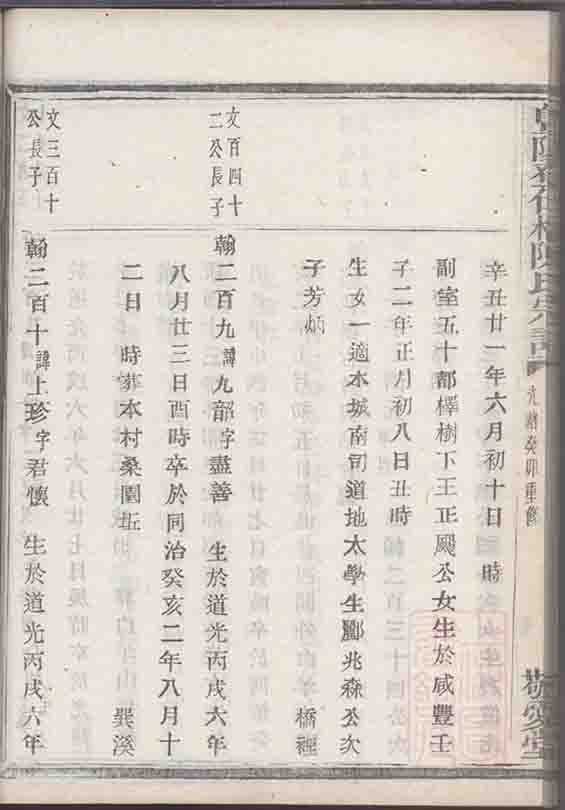 陳氏宗譜
光緒癸卯重修
敬愛堂
辛丑廿一年六月初十日 時
副室五十都檡樹下王正颺公女生於咸豐壬
子二年正月初八日丑時
生女一適本城南司道地太學生酈兆森公次
子芳炳 橋裡
文百四十
二公長子
翰二百九諱九韶字盡善 生於道光丙戌六年
八月廿三日酉時卒於同治癸亥二年八月十
二日 時葬本村桑園坵 巽溪
文三百十
公長子
翰二百十諱上珍字君懷 生於道光丙戌六年